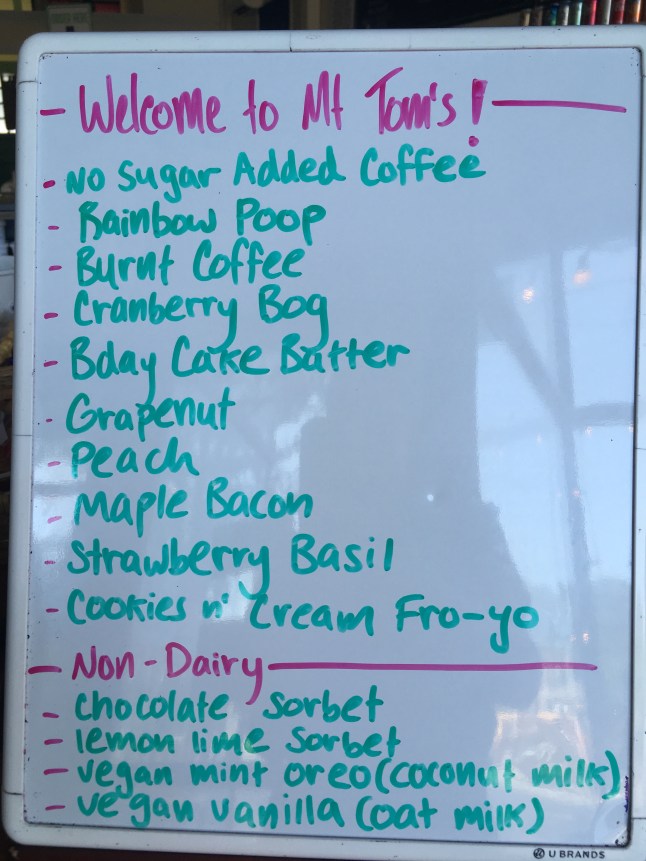 - Welcome to Mt Tom's!
- No Sugar Added Coffee
- Rainbow Poop
- Burnt Coffee
- Cranberry Bog
- Bday Cake Batter
- Grapenut
- Peach
- Maple Bacon
- Strawberry Basil
- Cookies n' Cream Fro-yo
- Non-Dairy
- chocolate sorbet
- lemon lime sorbet
- vegan mint oreo (coconut milk)
- vegan vanilla (oat milk)
U BRANDS